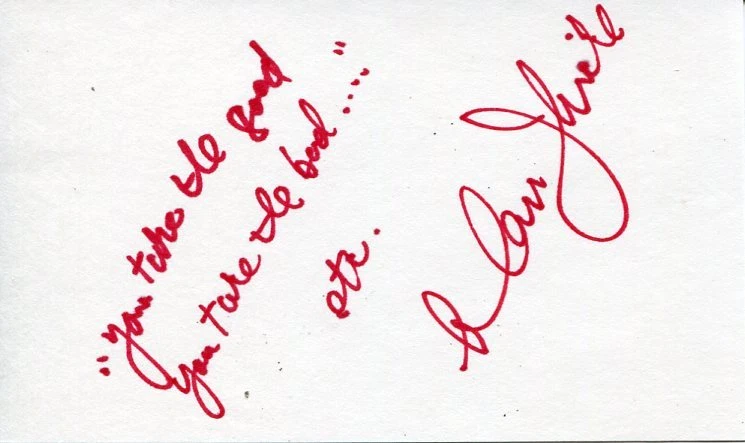 "you take the good
you take the bad...."
etc.
Alan Thicke